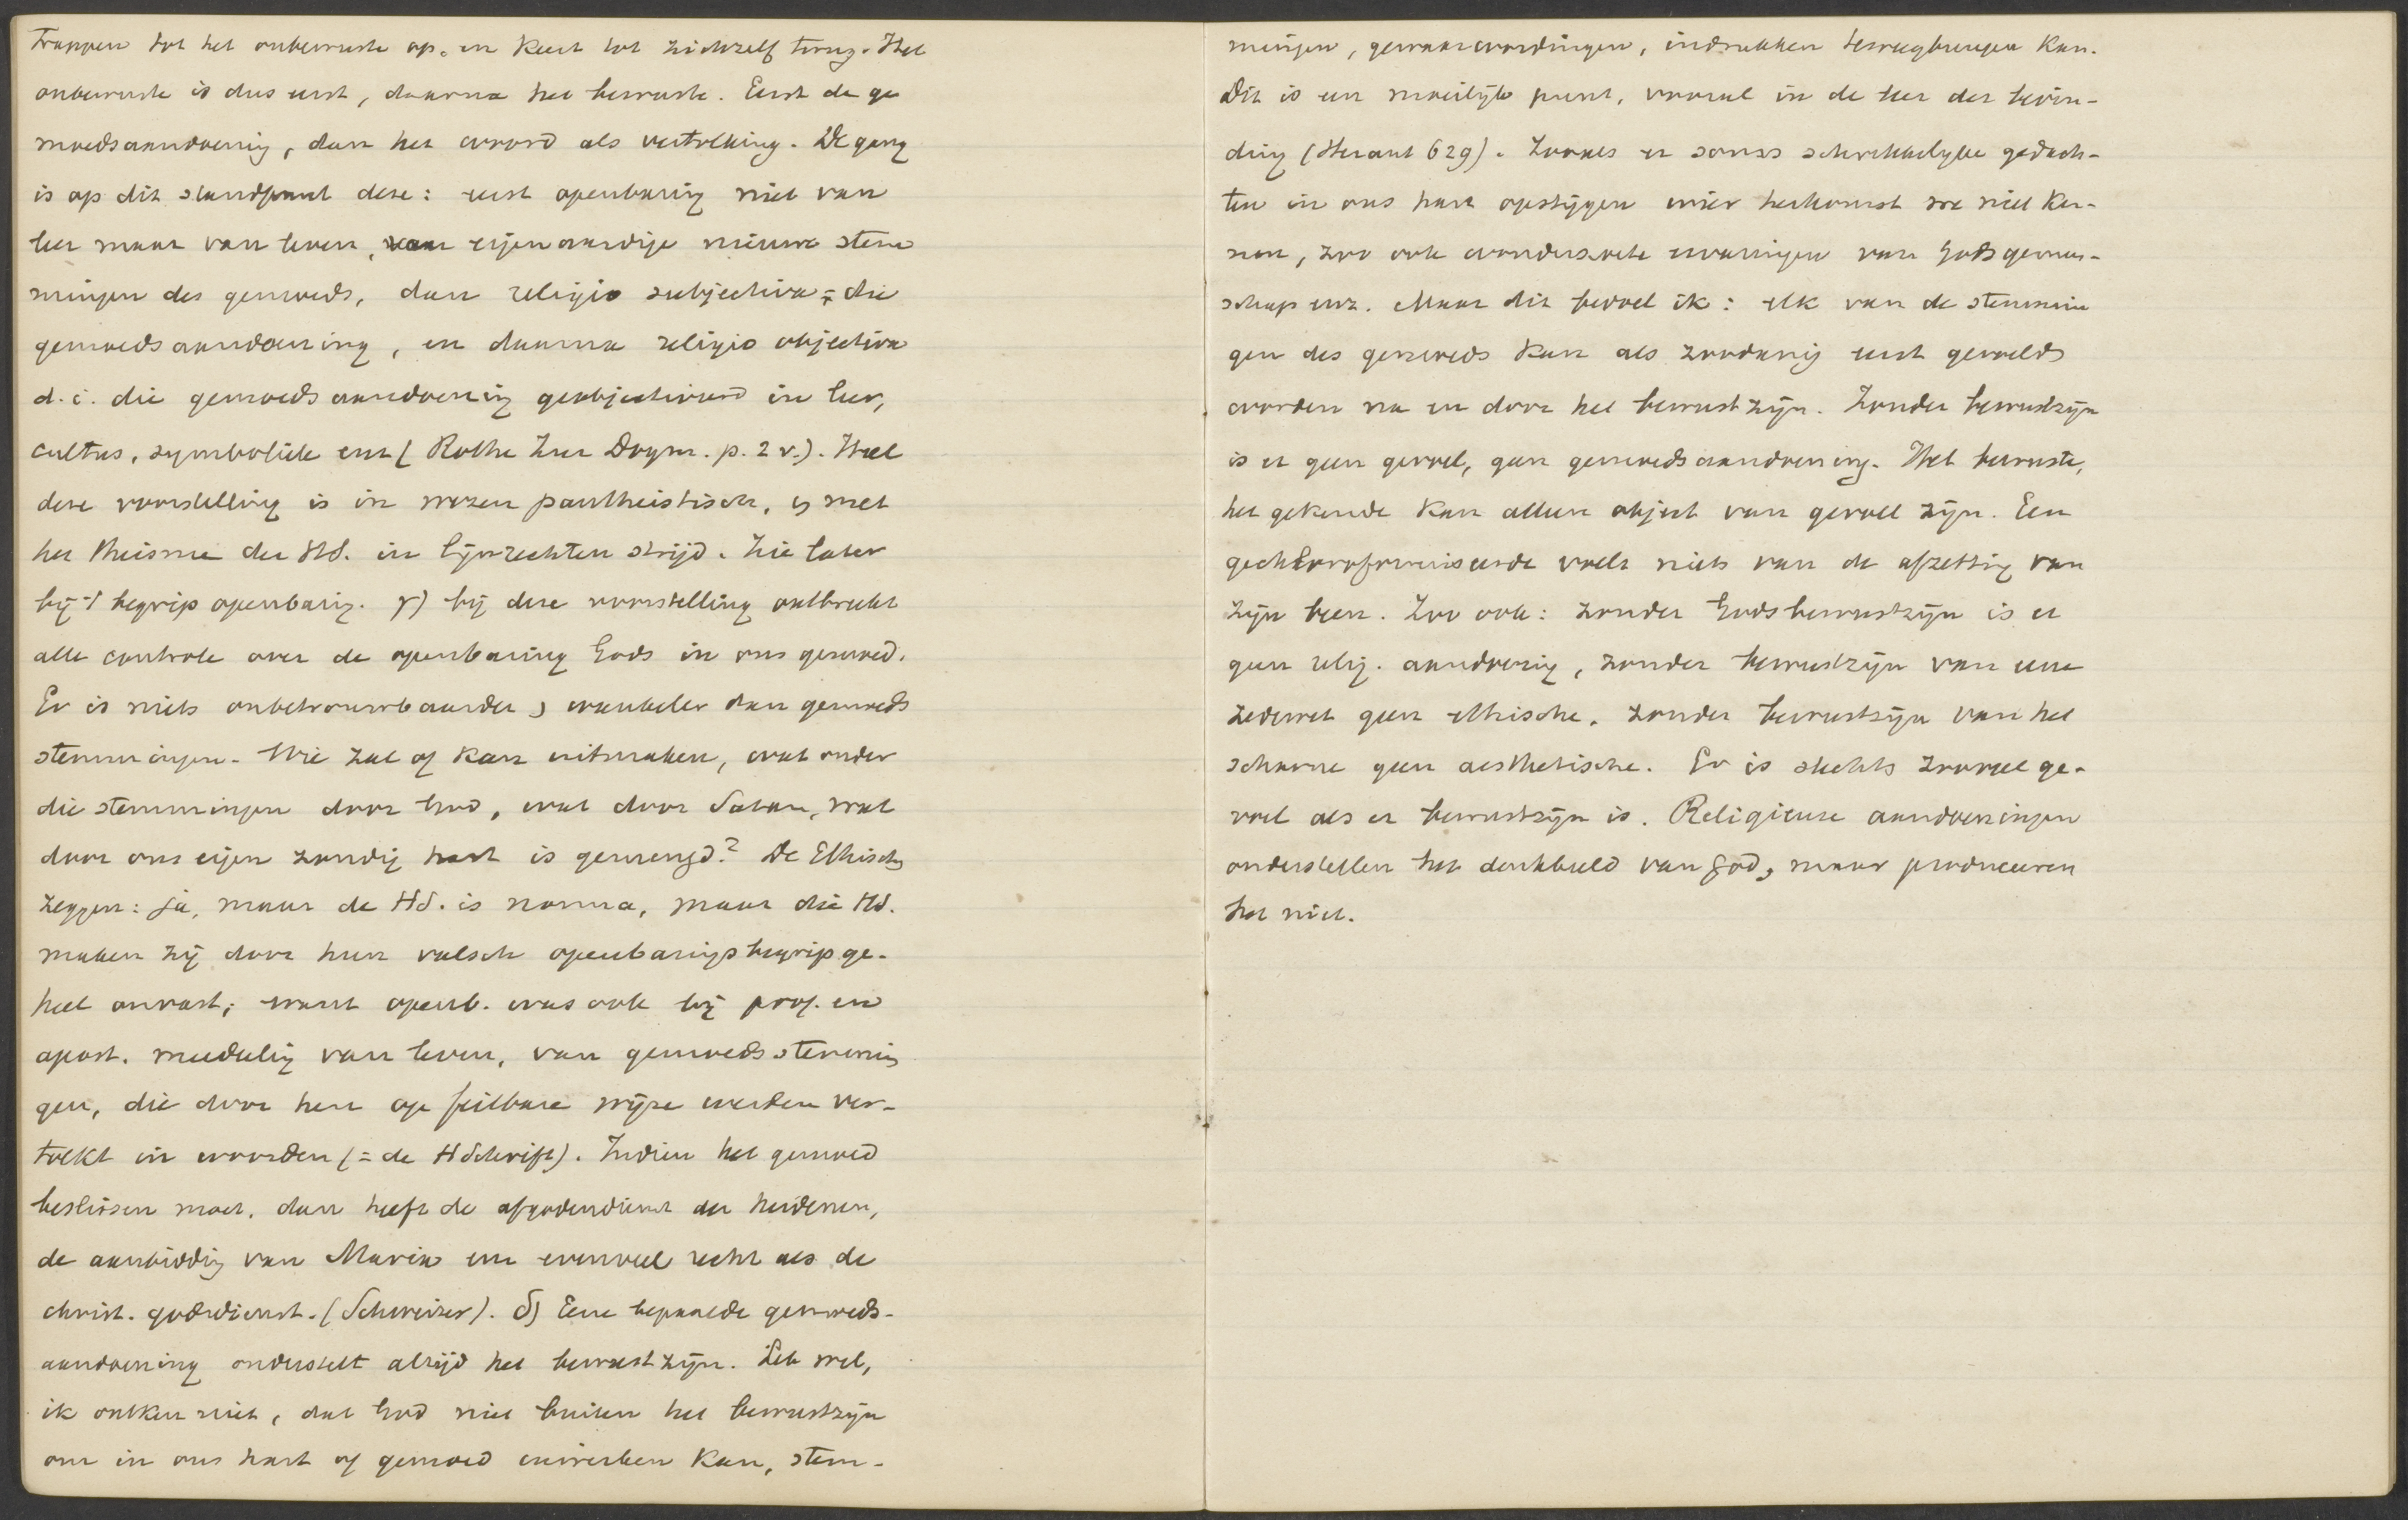 trappen tot het onbewuste op, en keert tot zichzelf terug. Het
onbewuste is dus eerst, daarna het bewuste. Eerst de ge
moedsaandoening, dan het woord als vertolking. De gang
is op dit standpunt deze: eerst openbaring niet van
leer maar van leven, van eigenaardige nieuwe stem
mingen des gemoeds, dan religio subjectiva = die
gemoedsaandoening, en daarna religio objectiva
d. i. die gemoedsaandoening geobjectiveerd in leer,
cultus, symboliek enz ( Rothe Zur Dogm. p. 2 v.). Heel
deze voorstelling is in wezen pantheistisch, is met
het theisme der HS. in lijnrechten strijd. Zie later
bij 't begrip openbaring. γ) bij deze voorstelling ontbreekt
alle controle over de openbaring Gods in ons gemoed.
Er is niets onbetrouwbaarder, wankeler dan gemoeds
stemmingen. Wie zal of kan uitmaken, wat onder
die stemmingen door God, wat door Satan, wat
door ons eigen zondig hart is gemengd? De Ethischen
zeggen: ja, maar de HS. is norma, maar die HS.
maken zij door hun valsch openbaringsbegrip ge-
heel onvast; want openb. was ook bij prof. en
apost. meedeling van leven, van gemoedsstemmin
gen, die door hen op feilbare wijze werden ver-
tolkt in woorden (= de HSchrift). Indien het gemoed
beslissen moet, dan heeft de afgodendienst der heidenen,
de aanbidding van Maria enz evenveel recht als de
christ. godsdienst. (Schweizer). δ) Eene bepaalde gemoeds-
aandoening onderstelt altijd het bewustzijn. Let wel,
ik ontken niet, dat God niet buiten het bewustzijn
om in ons hart of gemoed inwerken kan, stem-
mingen, gewaarwordingen, indrukken teweegbrengen kan.
Dit is een moeilijk punt, vooral in de leer der bevin-
ding (Heraut 629). Zooals er soms schrikkelijke gedach-
ten in ons hart opstijgen wier herkomst we niet ken-
nen, zoo ook wonderzoete ervaringen van Gods gemeen-
schap enz. Maar dit bedoel ik: elk van de stemmin
gen des gemoeds kan als zoodanig eerst gevoeld
worden na en door het bewustzijn. Zonder bewustzijn
is er geen gevoel, geen gemoedsaandoening. Het bewuste,
het gekende kan alleen object van gevoel zijn. Een
gechloroformiseerde voelt niets van de afzetting van
zijn been. Zoo ook: zonder Godsbewustzijn is er
geen relig. aandoening, zonder bewustzijn van eene
zedewet geen ethische, zonder bewustzijn van het
schoone geen aesthetische. Er is slechts zooveel ge-
voel als er bewustzijn is. Religieuse aandoeningen
onderstellen het denkbeeld van God, maar produceeren
het niet.